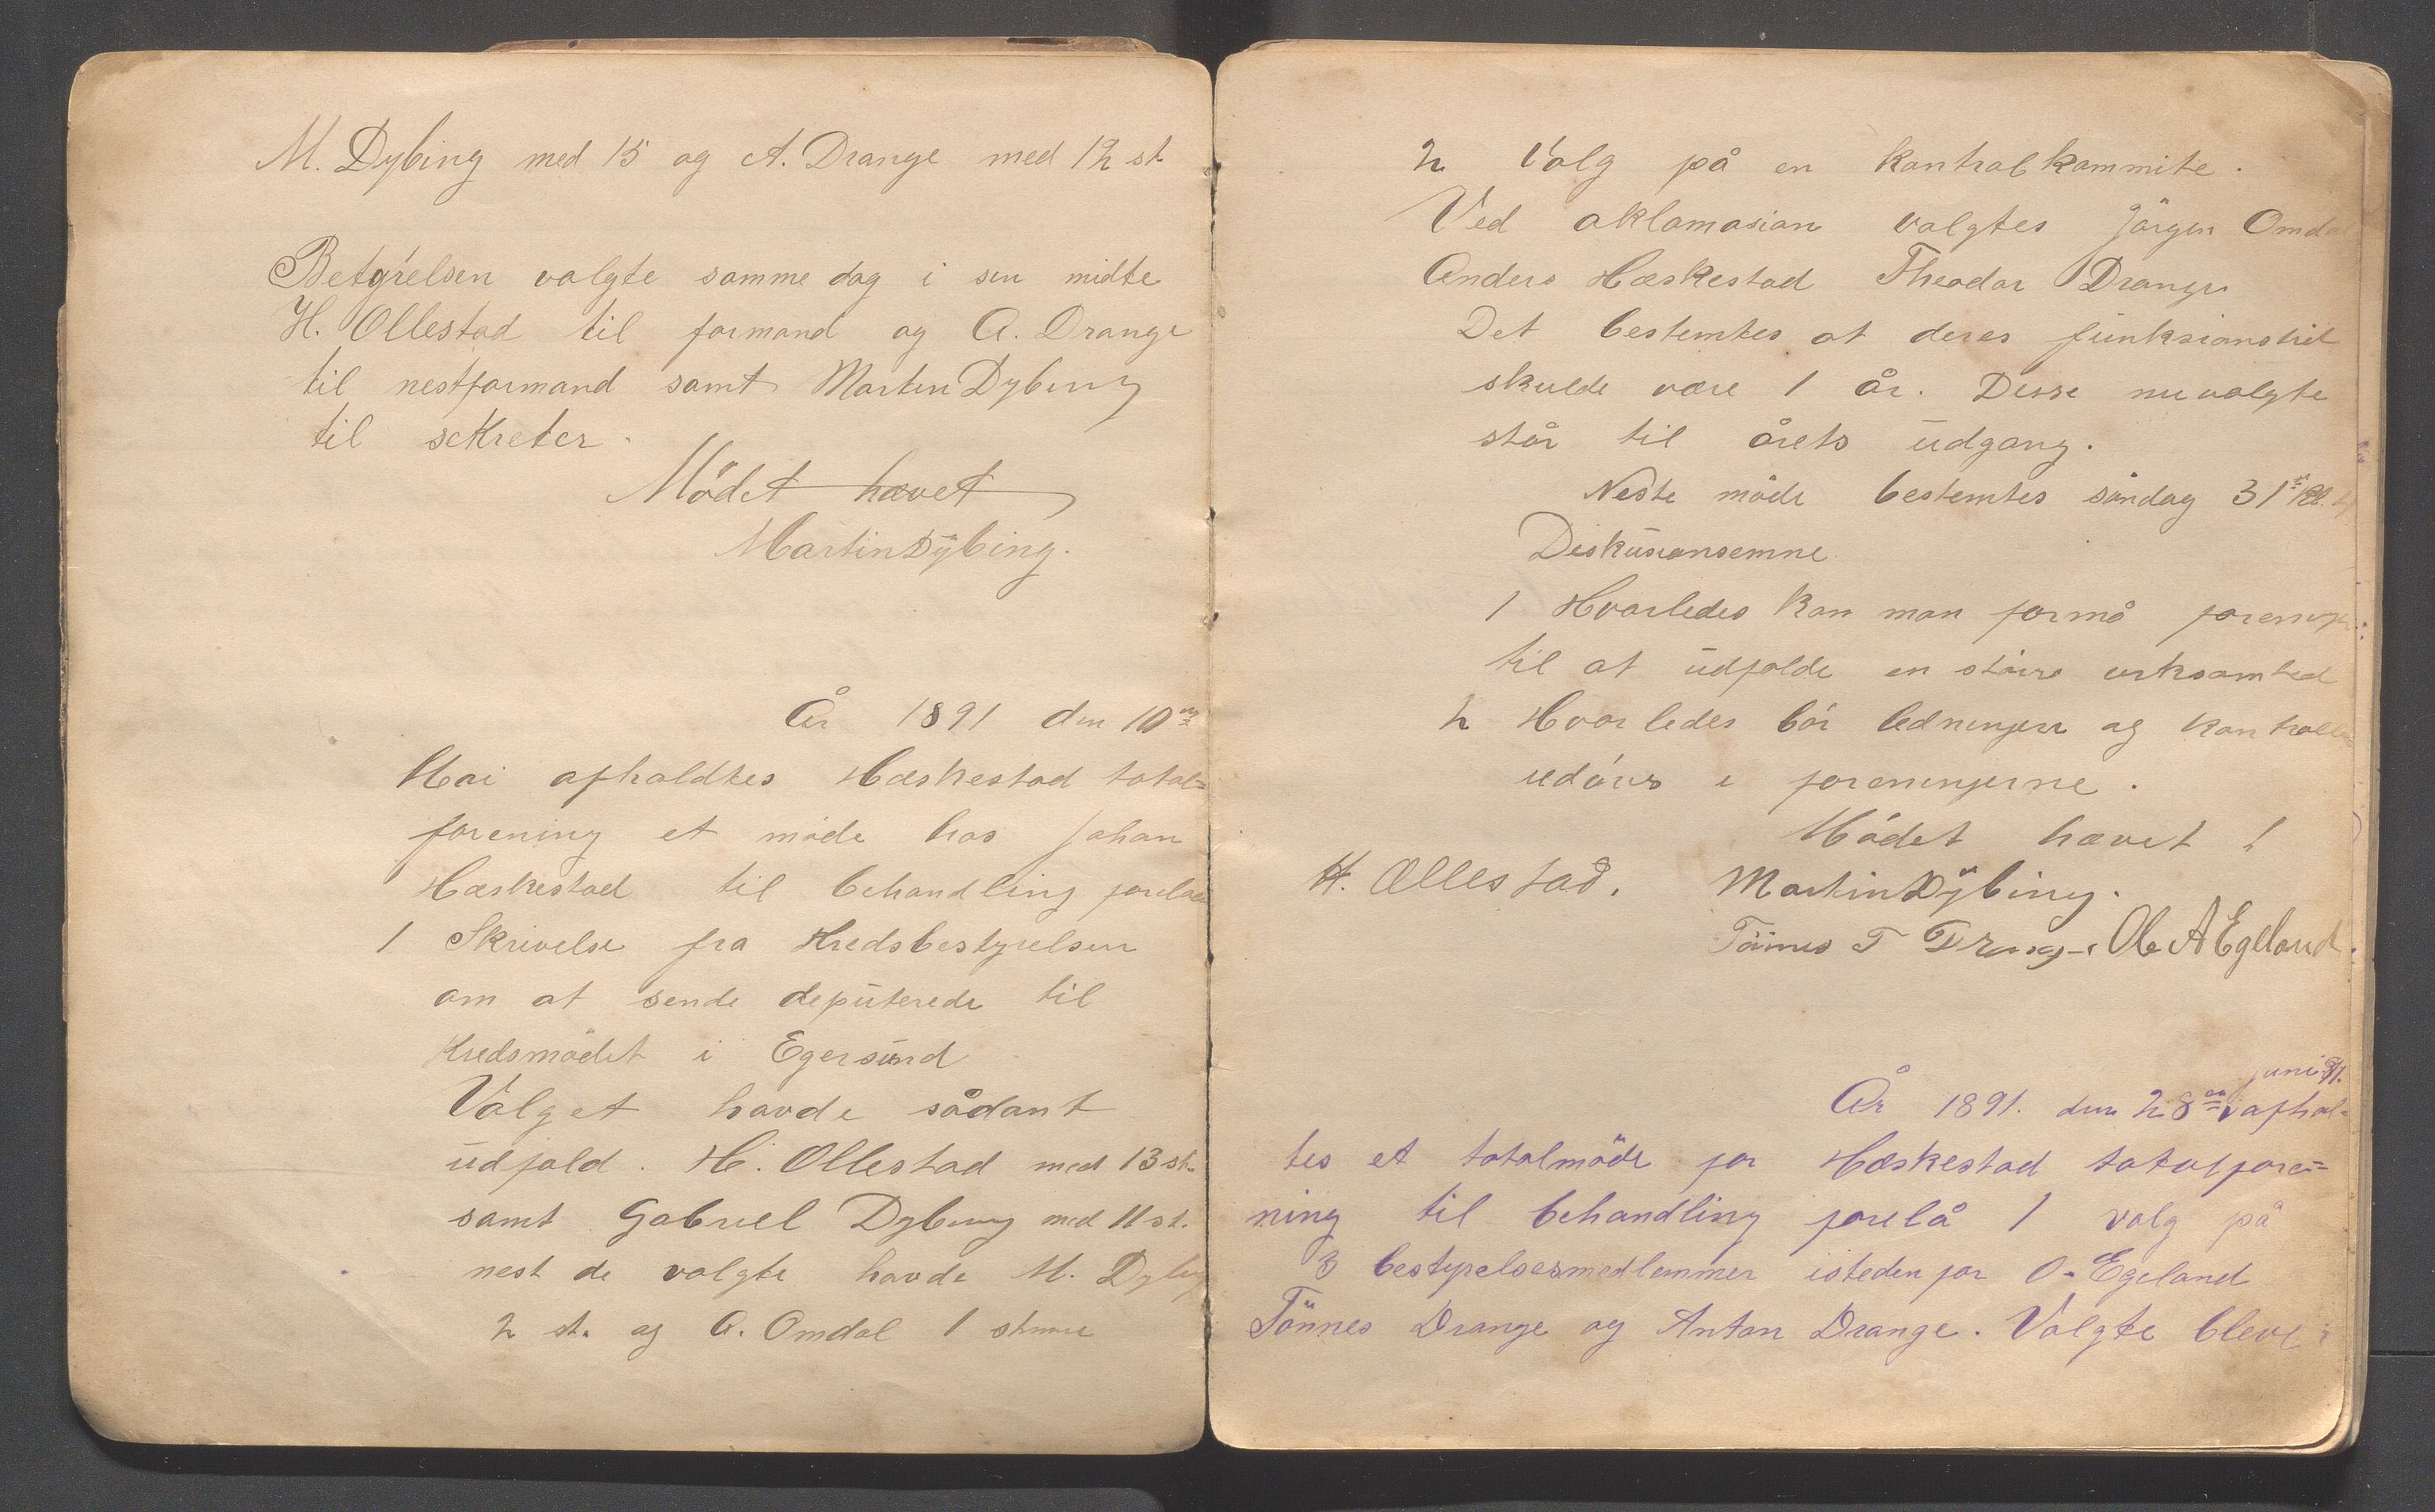 M. Dybing med 15 og A. Drange med 12 st.
Betyrelsen valgte samme dag i sin midte
H. Ollestad til formand og A. Drange
til nestformand samt Martin Dybing
til sekreter.
Mödet hævet
Martin Dÿbing.
År 1891 den 10de
Mai afholdtes Hæskestad total=
forening et möde hos Johan
Hæskestad til behandling forelå
1 Skrivelse fra Kredsbestyrelsen
om at sende deputerede til
Kredsmödet i Egersund
Valget havde sådant
udfald. H. Ollestad med 13 st.
samt Gabriel Dybing med 11 st.
nest de valgte havde M. Dybing
2 st. og A. Omdal 1 stemme
2 Valg på en kontrolkommite.
Ved aklamasion valgtes Jörgen Omdal
Anders Hæskestad Theodor Drange
Det bestemtes at deres funksionstid
skulde være 1 år. Disse nu valgte
står til årets udgang.
Neste möde bestemtes söndag 31te Kl.
Diskusionsemne
1 Hvorledes kan man formå
til at udfolde en större virksomhed
2 Hvorledes bör ledningen og kontrollen
udöves i foreningerne.
Mödet hævet
H. Ollestad. Martin Dÿbing.
Tönnes T Drange Ole A Egeland.
juni 91.
År 1891. den 28de afhol=
tes et totalmöde for Hæskestad totalfore=
ning til behandling forelå 1 valg på
3 bestyrelsesmedlemmer isteden for O. Egeland
Tönnes Drange og Anton Drange. Valgte bleve